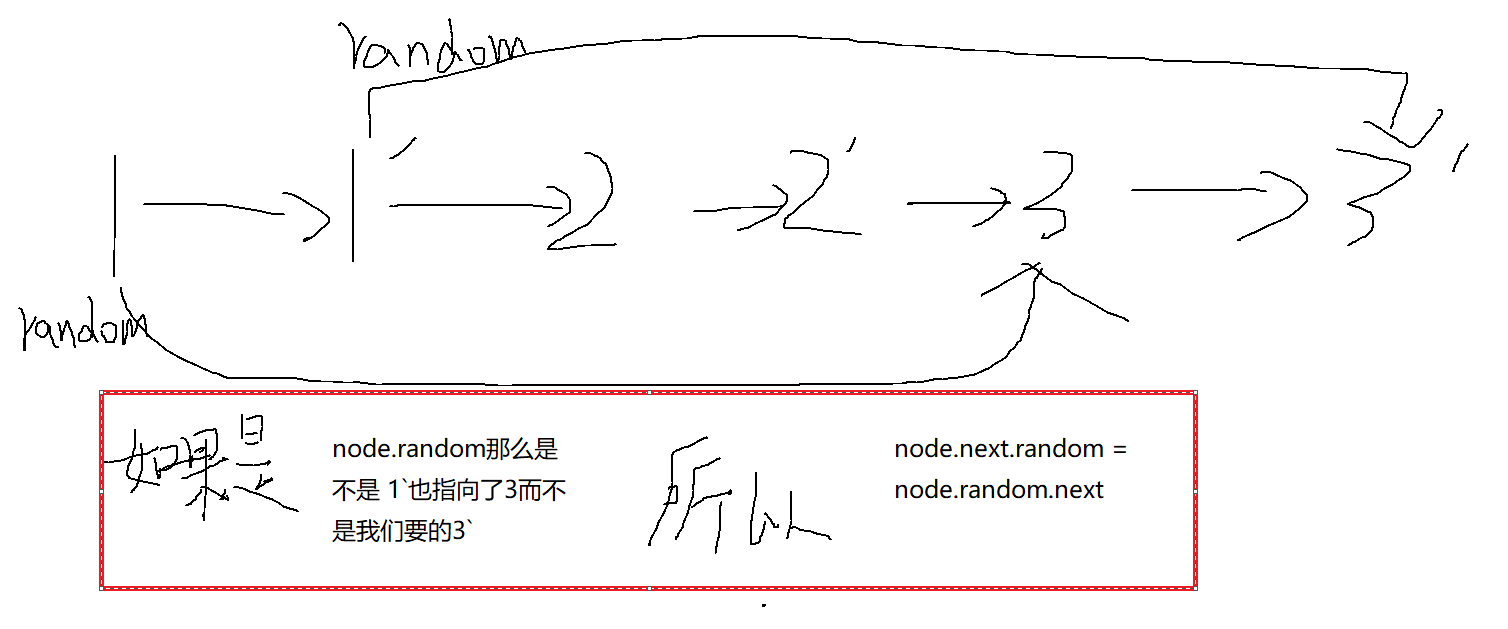 random
1 1' 2 2' 3 3'
random
如果是
node.random那么是
不是 1`也指向了3而不
是我们要的3`
所以
node.next.random =
node.random.next